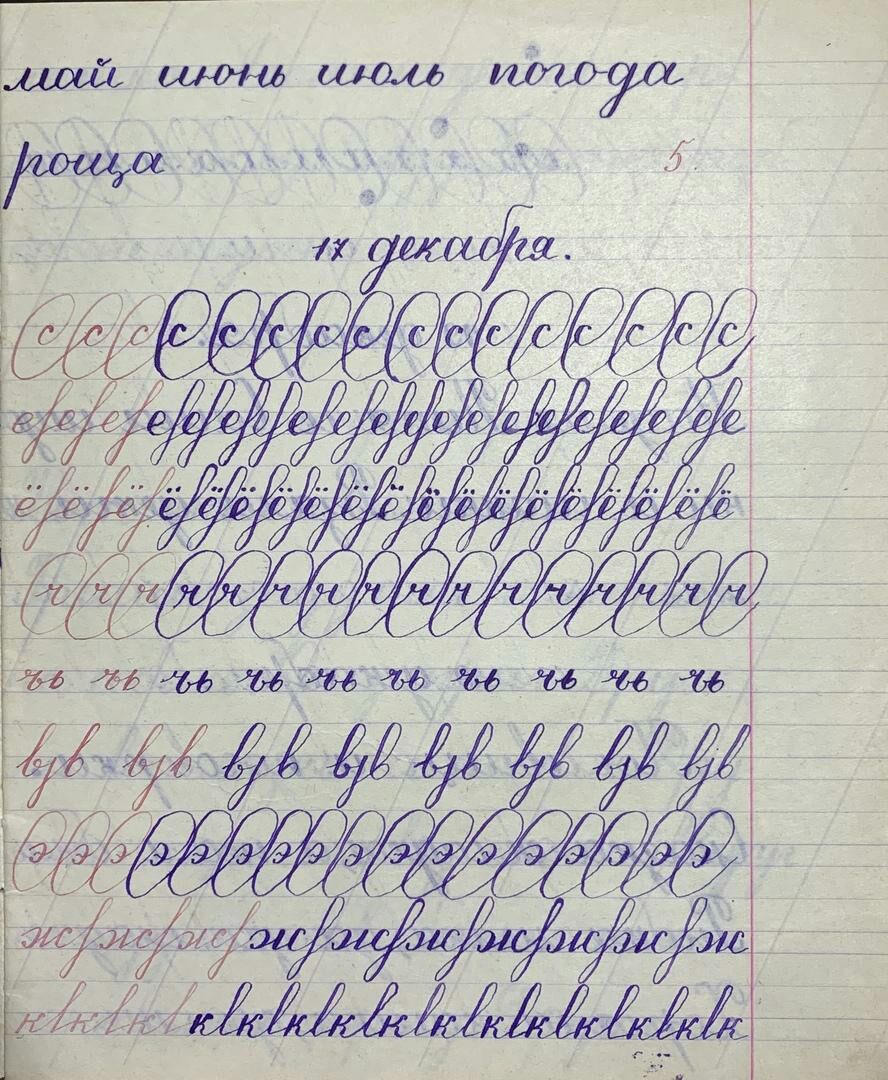 май июнь июль погода
роща 5
17 декабря.
с с с с с с с с с с с с с с
е е е е е е е е е е е е е е е е е е
ё ё ё ё ё ё ё ё ё ё ё ё ё ё ё ё ё ё
ч ч ч ч ч ч ч ч ч ч ч ч ч ч
чь чь чь чь чь чь чь чь чь чь
вјв вјв вјв вјв вјв вјв вјв вјв
э э э э э э э э э э э э э э э
ж ж ж ж ж ж ж ж ж ж
к к к к к к к к к к к